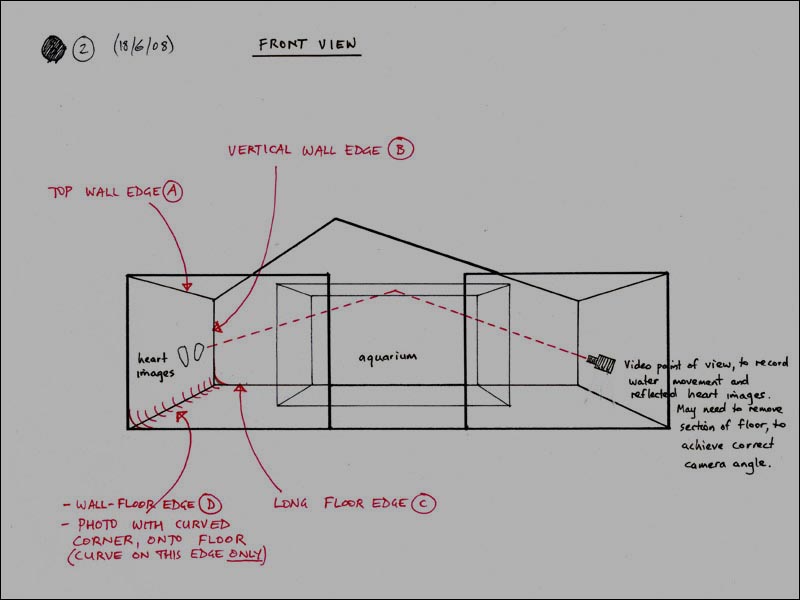 2 (18/6/08)
FRONT VIEW
VERTICAL WALL EDGE B
TOP WALL EDGE A
heart
images
aquarium
Video point of view, to record
water movement and
reflected heart images.
May need to remove
section of floor, to
achieve correct
camera angle.
- WALL-FLOOR EDGE D
- PHOTO WITH CURVED
CORNER, ONTO FLOOR
(CURVE ON THIS EDGE ONLY)
LONG FLOOR EDGE C